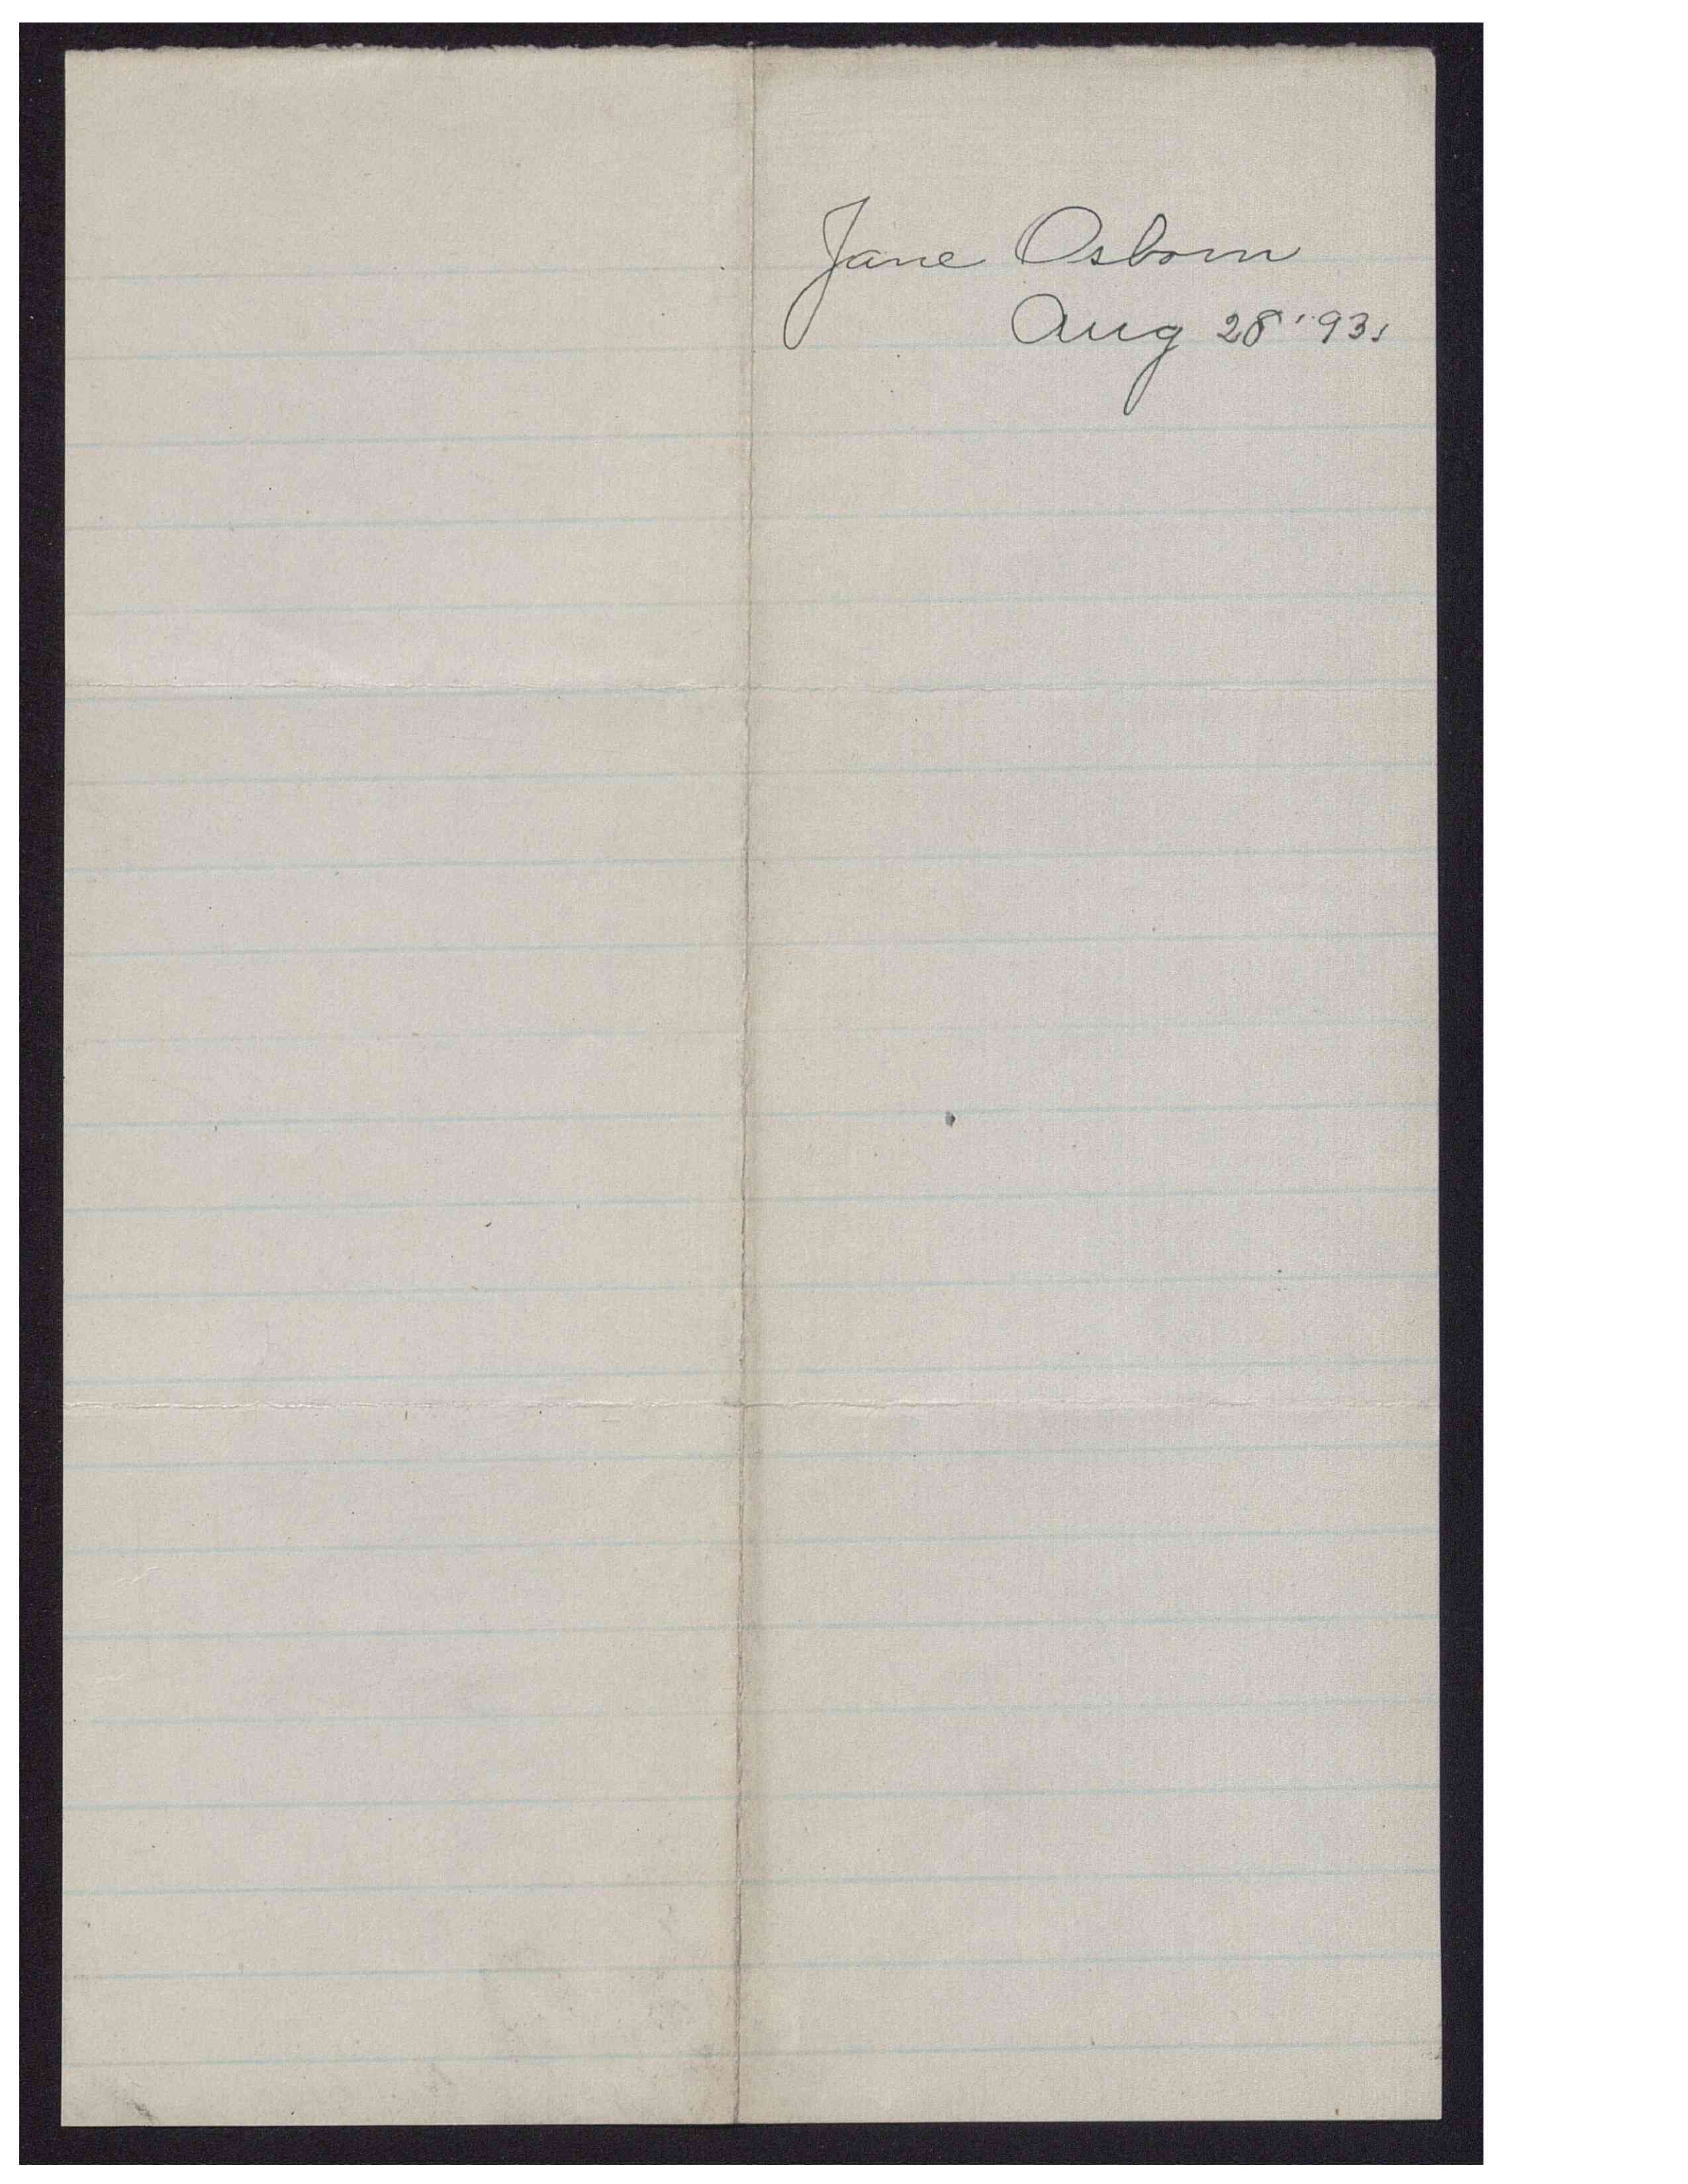 Jane Osborn
Aug 28 '93.